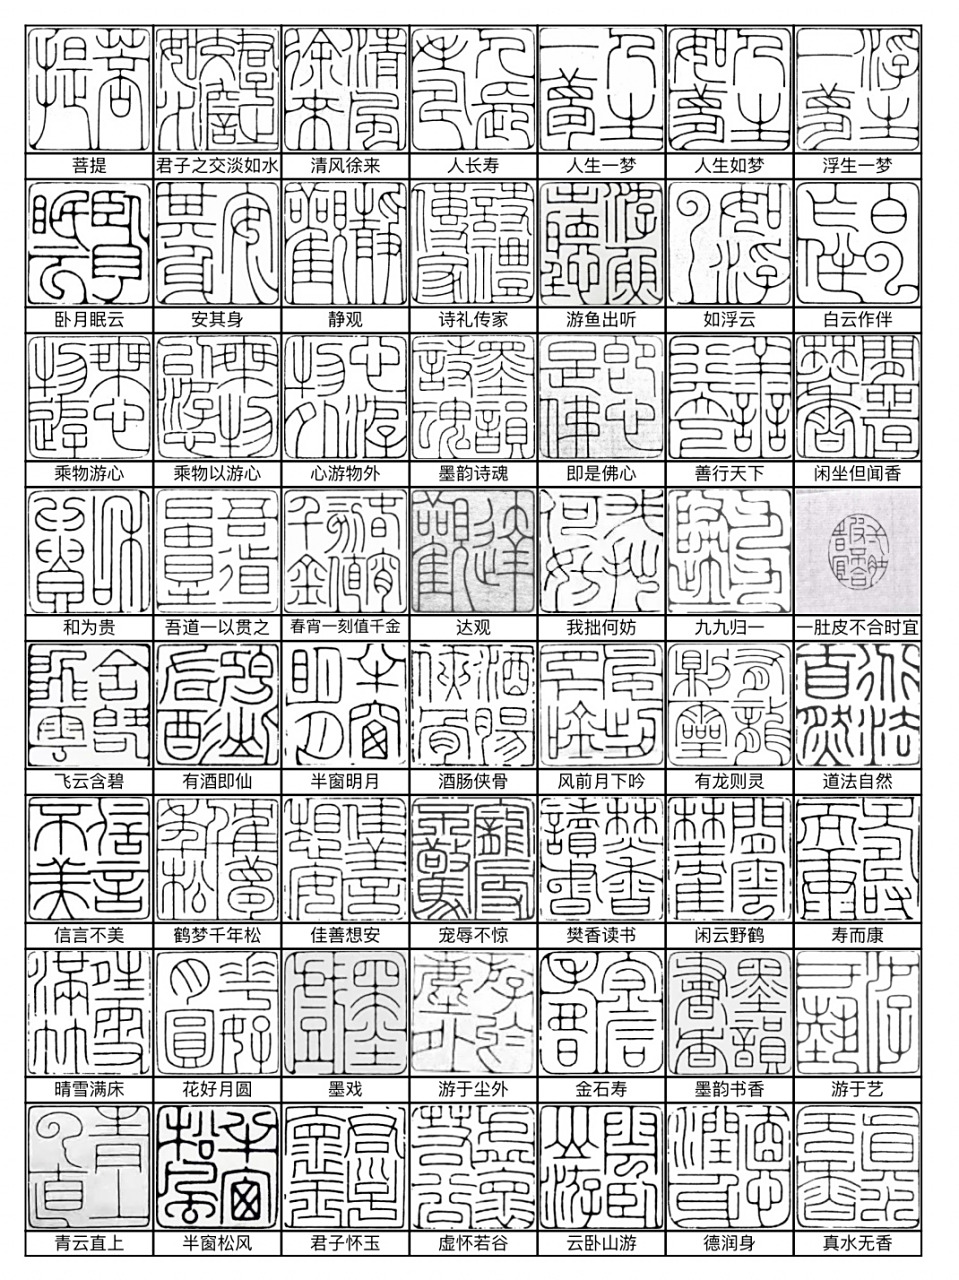 菩提 君子之交淡如水 清风徐来 人长寿 人生一梦 人生如梦 浮生一梦
卧月眠云 安其身 静观 诗礼传家 游鱼出听 如浮云 白云作伴
乘物游心 乘物以游心 心游物外 墨韵诗魂 即是佛心 善行天下 闲坐但闻香
和为贵 吾道一以贯之 春宵一刻值千金 达观 我拙何妨 九九归一 一肚皮不合时宜
飞云含碧 有酒即仙 半窗明月 酒肠侠骨 风前月下吟 有龙则灵 道法自然
信言不美 鹤梦千年松 佳善想安 宠辱不惊 樊香读书 闲云野鹤 寿而康
晴雪满床 花好月圆 墨戏 游于尘外 金石寿 墨韵书香 游于艺
青云直上 半窗松风 君子怀玉 虚怀若谷 云卧山游 德润身 真水无香